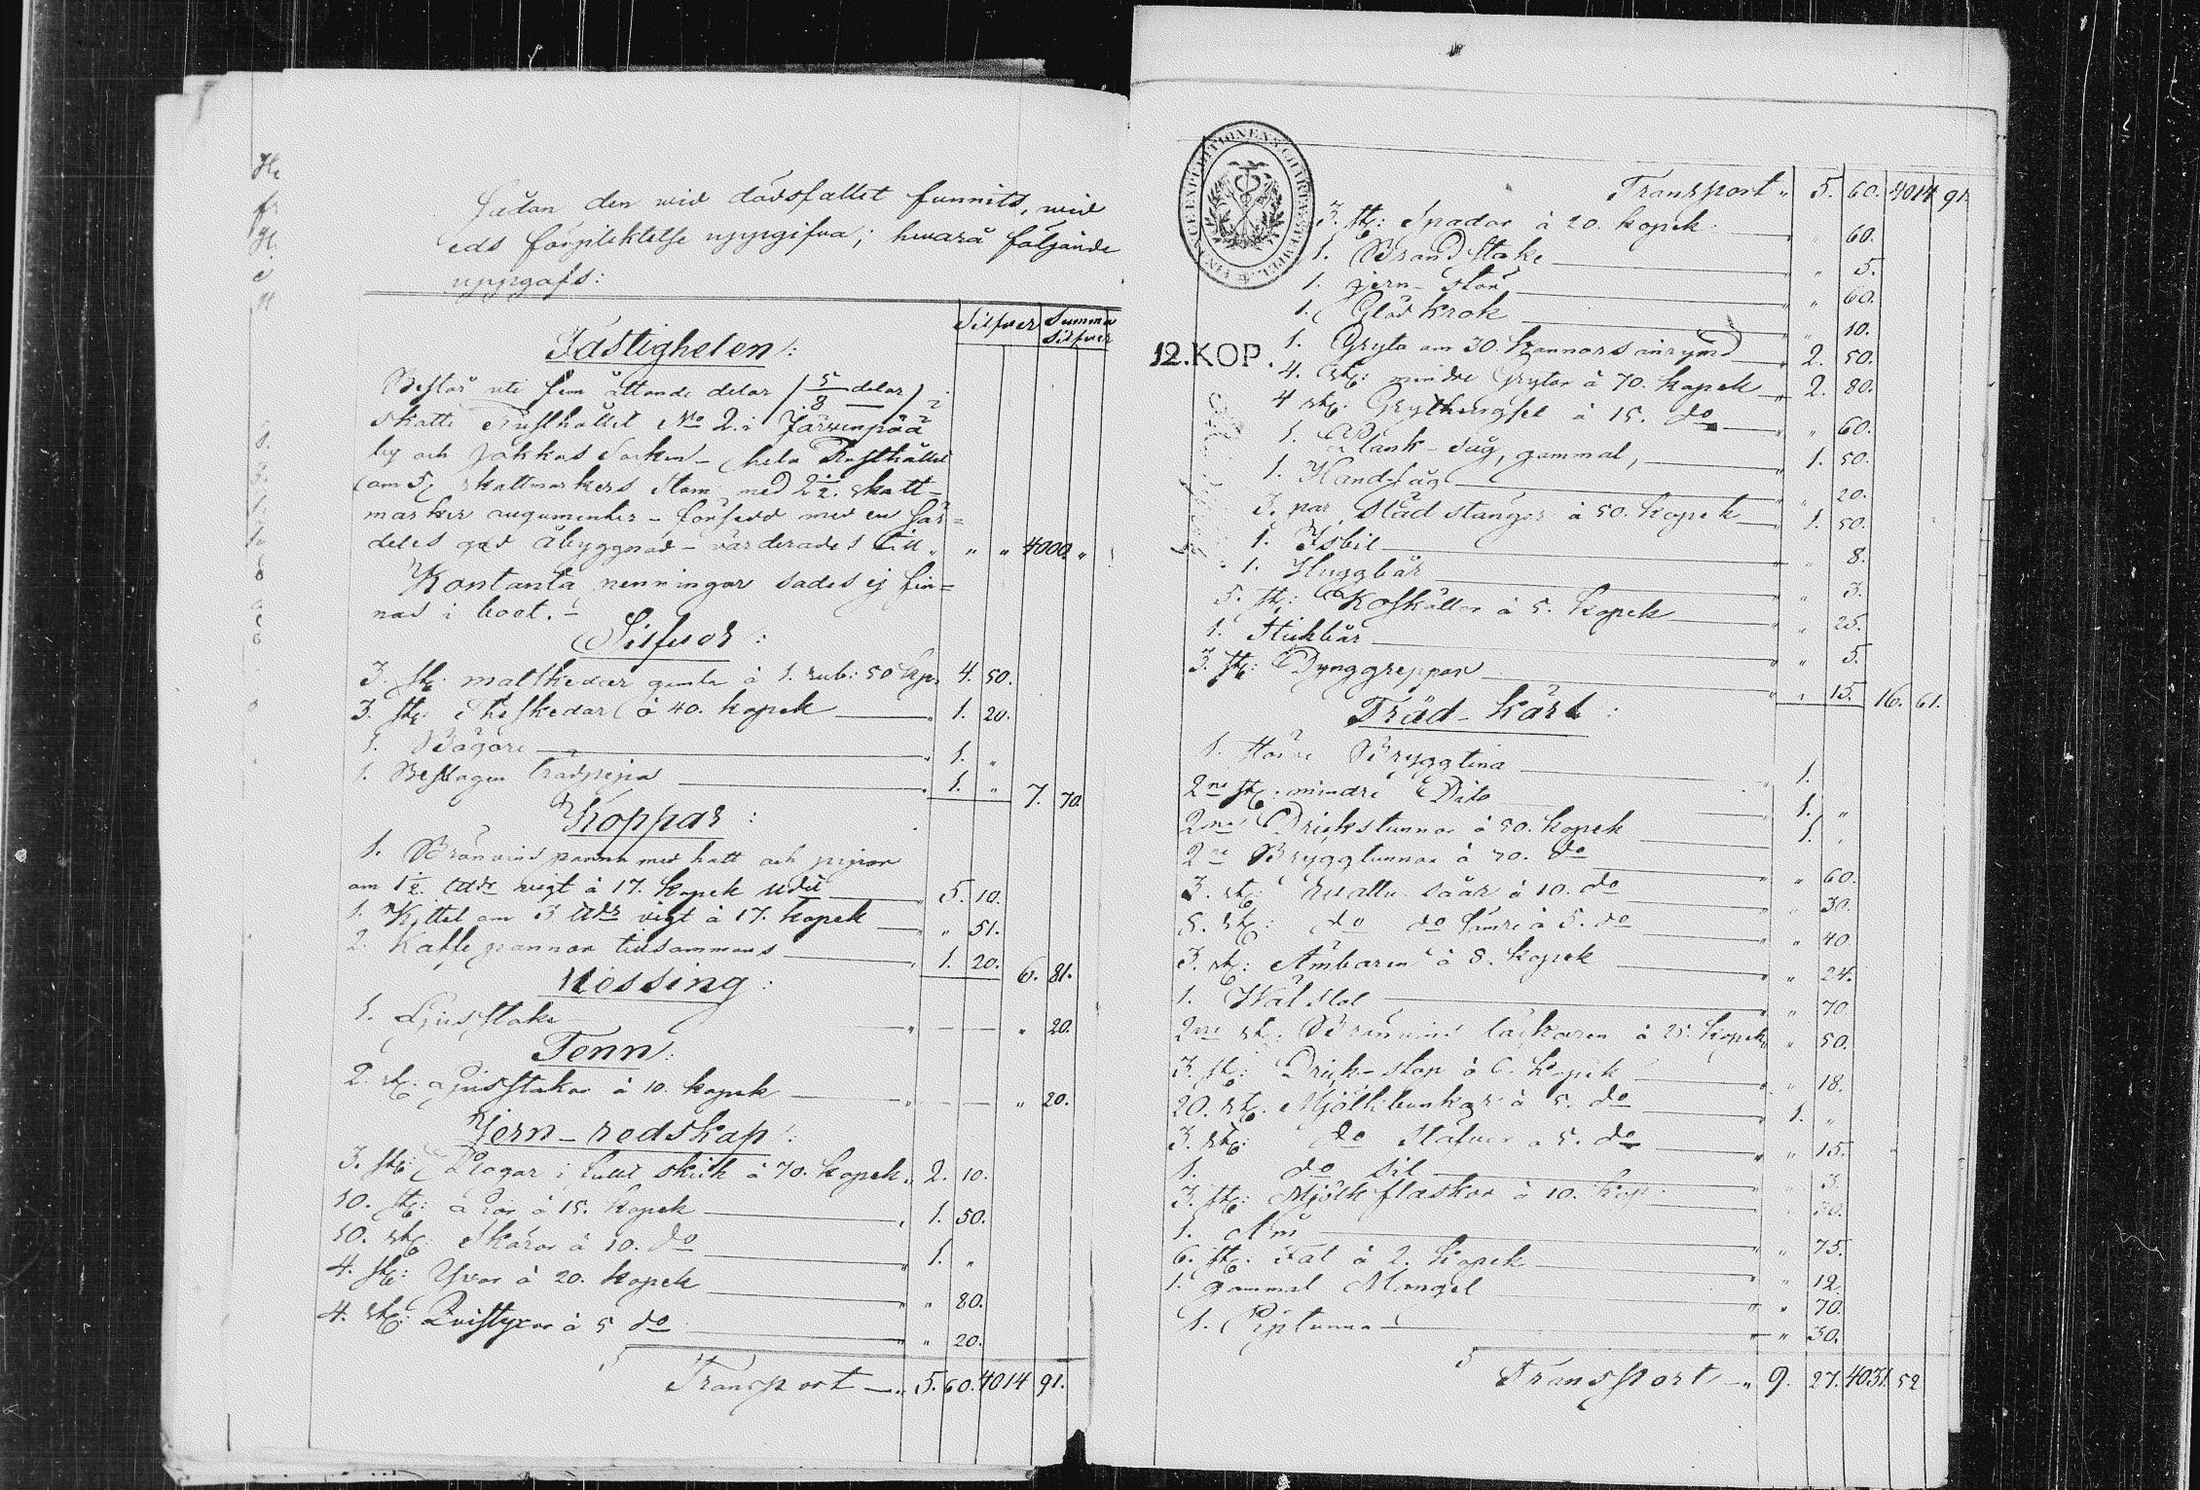 sådan den wid dödsfallet funnits, wid
eds förpliktelse uppgifva; hvarå följande
uppgafs:
Silfver Summa Silfver
Fastigheten:
Består uti fem åttonde delar (5/8 delar)
skatte Rusthållet No 2 i Järvenpää
by och Jokkas Socken - hela Rusthållet
om 5 skattmarkers stam med 2½ skatt-
marker augumenter - försedd med en får-
deles god åbyggnad - värderades till " " 4000 "
Kontanta penningar sades ej fin=
nas i boet. -
Silfver:
3. st: matskedar gamla à 1. rub: 50 kop. 4. 50.
3. st: Theskedar à 40. kopek 1. 20.
1. Bägare 1. "
1. Beslagen trädpipa 1. " 7. 70
Koppar:
1. Brännvins panna med hatt och pipor
om 1½ vigt à 17. kopek 5. 10.
1. Kittel om 3 vigt à 17. kopek " 51.
2. Kaffe pannor tillsammans 1. 20. 6. 81.
Messing:
1. Ljusstake " 20.
Tenn:
2. st. Ljusstakar à 10. kopek " 20.
Jern-redskap:
3. st: Plogar i fullt skick à 70. kopek 2. 10.
10. st: Lior à 15. kopek 1. 50.
10. st: Skäror à 10. do 1. "
4. st: Yxor à 20. kopek " 80.
4. st: Qvistyxor à 5 do " 20.
Transport 5. 60. 4014 91.
FINANCE EXPEDITIONENS CHARTÆ STEMPEL
12. KOP.
Transport " 5. 60. 4014 91
3. st: Spadar à 20. kopek " 60.
1. Brand stake " 5.
1. jern-stör " 60.
1. Glöd krok " 10.
1. Gryta om 30. kannors inrymd 2. 50.
4. st: mindre Grytor à 70. kopek 2. 80.
4 st. à 15. do " 60.
1. Plank-såg, gammal, 1. 50.
1. Handsåg " 20.
3. par stänger à 50. kopek 1. 50.
1. Isbil " 8.
1. Huggbår " 3.
5. st: Koskällor à 5. kopek " 25.
1. " 5.
3. st: Dynggreppar " 15. 16. 61.
Träd-kärl:
1. större Bryggtina 1.
2ne st. mindre Dito 1. "
2ne Drickstunnor à 50. kopek 1. "
2ne Bryggtunnor à 30. do " 60.
3. st: Wattu såar à 10. do " 30.
8. st: do do sämre à 5. do " 40
3. st: Ämbaren à 8. kopek " 24.
1. Wäfstol " 70.
2ne st. Brännvins läckaren à 25. kopek " 50.
3. st: Drick-stop à 6. kopek " 18.
20. st. Mjölkbunkar à 5. do 1. "
3. st: do Stäfvor à 5. do " 15.
1. do Sil " 3
3. st: Mjölkflaskor à 10. kop. " 30.
1. " 75.
6. st: Fat à 2. kopek " 12.
1. gammal Mangel " 70.
1. " 30.
Transport " 9. 27. 4031. 52